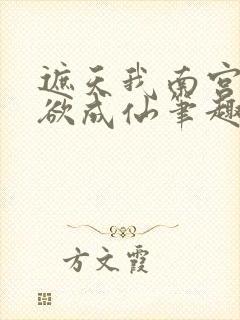 遮天我南宫
欲成仙笔趣
方文霞